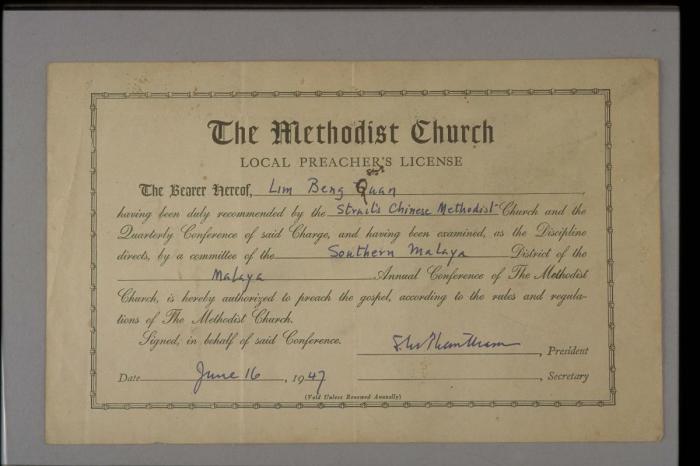 The Methodist Church
LOCAL PREACHER'S LICENSE
The Bearer Hereof, Lim Beng Quan
having been duly recommended by the Straits Chinese Methodist Church and the
Quarterly Conference of said Charge, and having been examined, as the Discipline
directs, by a committee of the Southern Malaya District of the
Malaya Annual Conference of The Methodist
Church, is hereby authorized to preach the gospel, according to the rules and regula-
tions of The Methodist Church.
Signed, in behalf of said Conference.
, President
Date June 16, 1947 , Secretary
(Void Unless Renewed Annually)